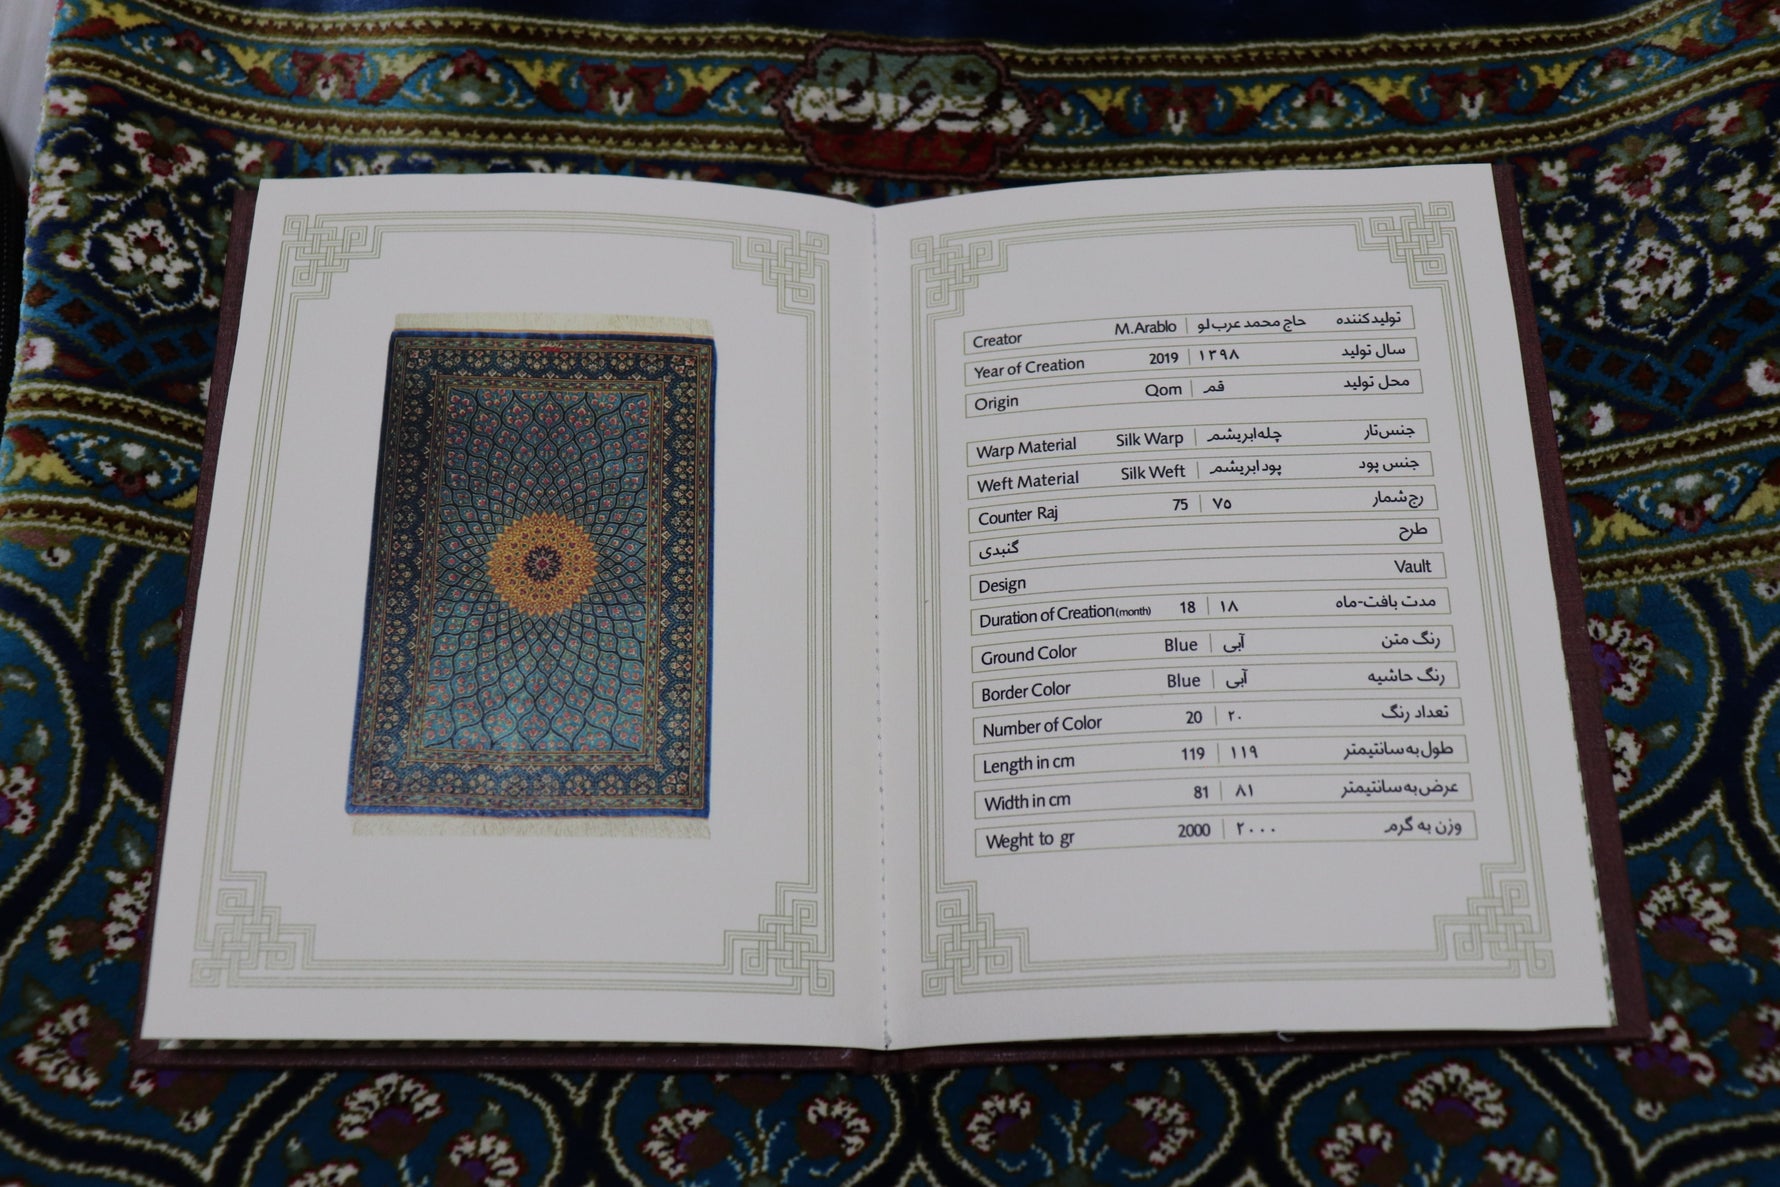 Creator M.Arablo | حاج محمد عرب لو تولیدکننده
Year of Creation 2019 | ۱۳۹۸ سال تولید
Origin Qom | قم محل تولید
Warp Material Silk Warp | چله ابریشم جنس تار
Weft Material Silk Weft | پود ابریشم جنس پود
Counter Raj 75 | ۷۵ رج شمار
گنبدی طرح
Design Vault
Duration of Creation (month) 18 | ۱۸ مدت بافت-ماه
Ground Color Blue | آبی رنگ متن
Border Color Blue | آبی رنگ حاشیه
Number of Color 20 | ۲۰ تعداد رنگ
Length in cm 119 | ۱۱۹ طول به سانتیمتر
Width in cm 81 | ۸۱ عرض به سانتیمتر
Weght to gr 2000 | ۲۰۰۰ وزن به گرم